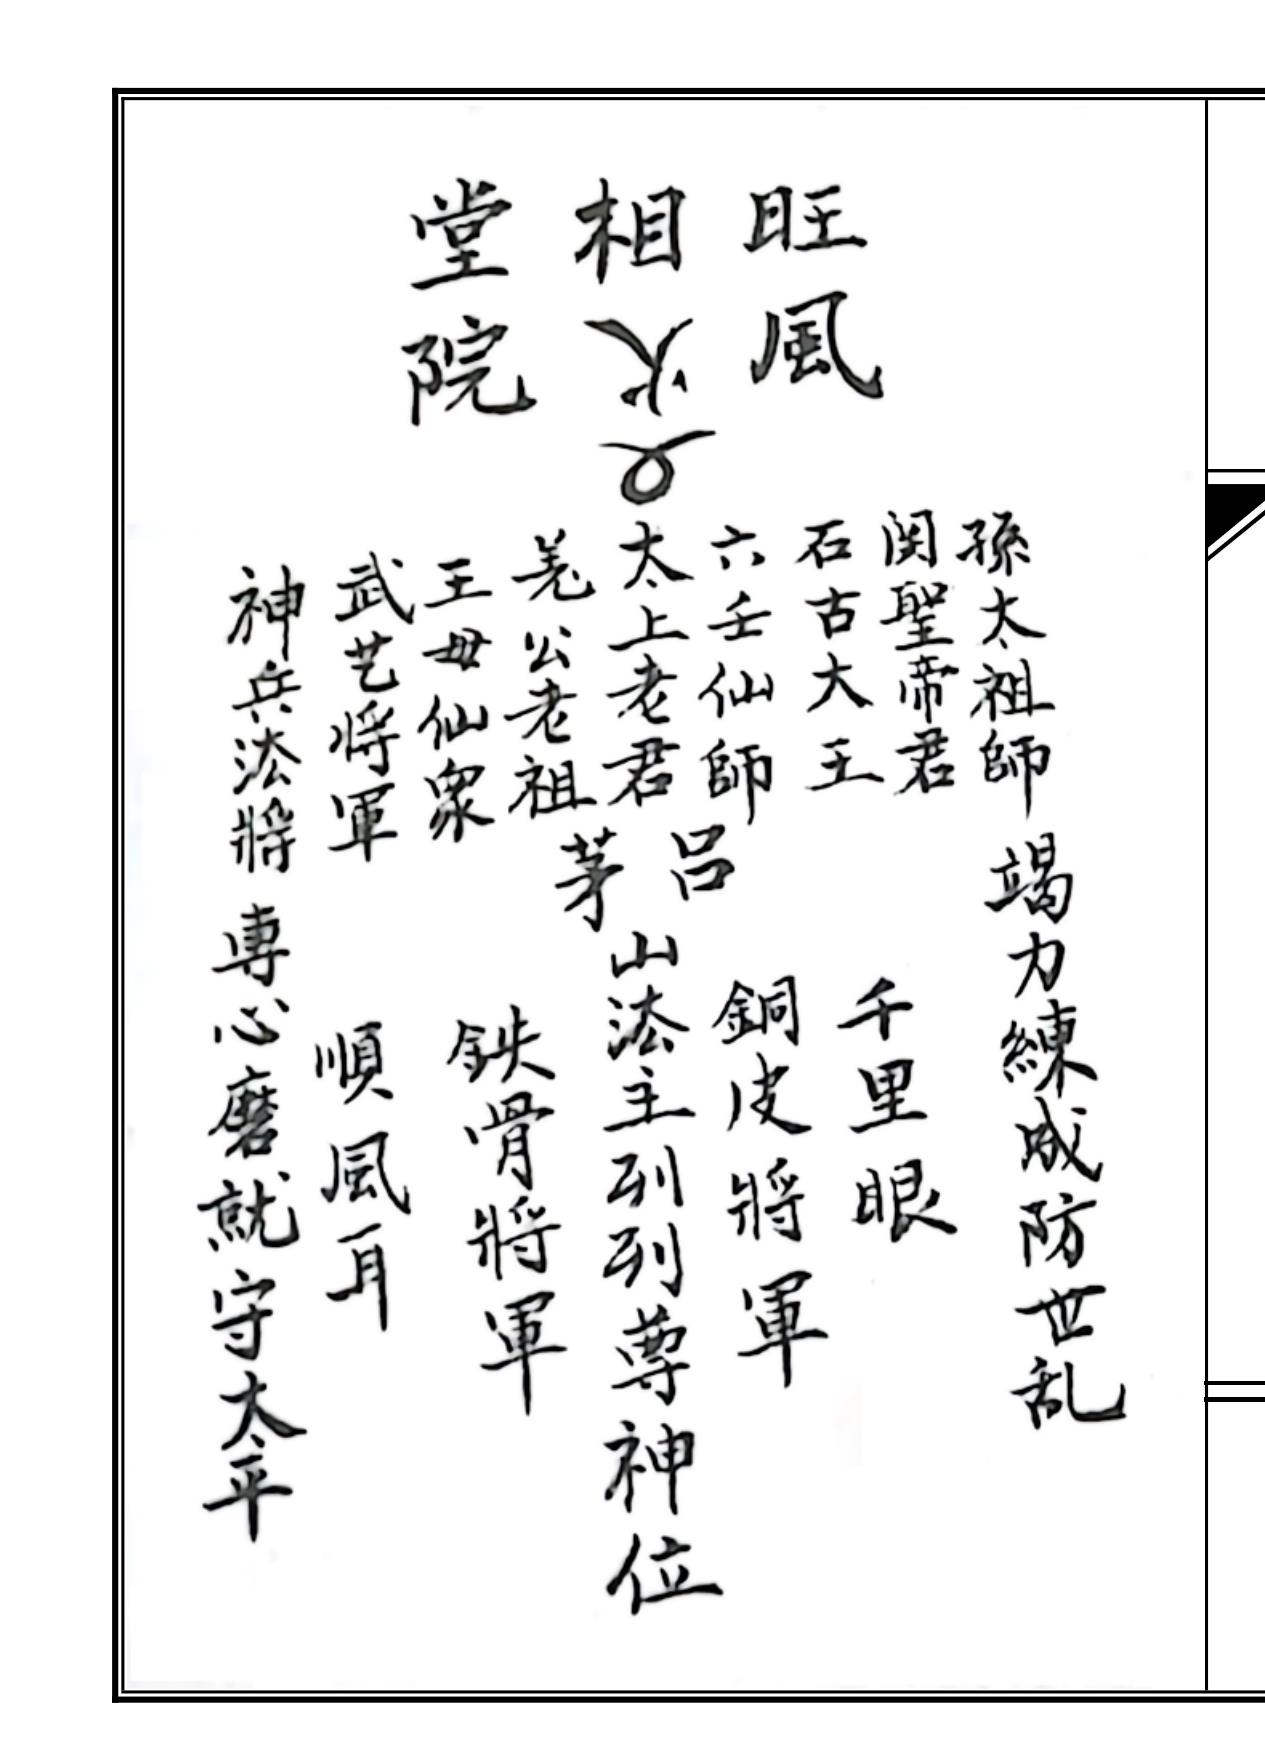 旺相堂
風院
孫太祖師
関聖帝君
石古大王
六壬仙師
太上老君
羌公老祖
王母仙衆
武艺将軍
神兵法將
呂茅
山法主列列尊神位
竭力練成防世乱
千里眼
銅皮將軍
鉄骨將軍
順風耳
專心磨就守太平